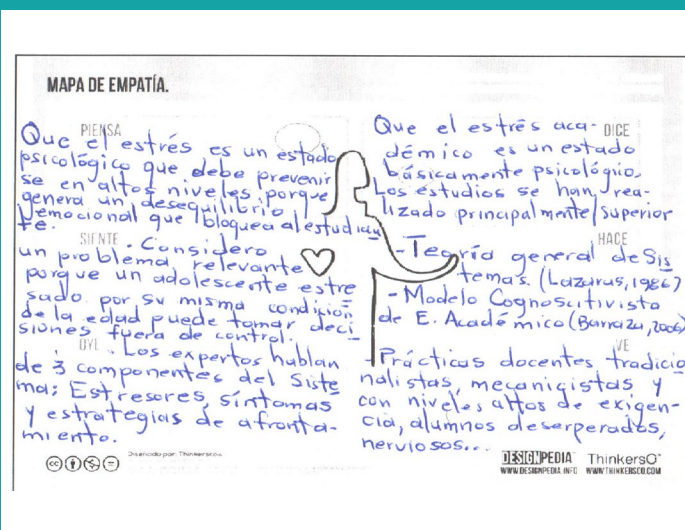 MAPA DE EMPATÍA.
PIENSA
Que el estrés es un estado
psicológico que debe prevenir
se en altos niveles, porque
genera un desequilibrio
emocional que bloquea al estudian
te.
SIENTE
. Considero
un problema relevante
porque un adolescente estre
sado por su misma condición
de la edad puede tomar deci
siones fuera de control.
OYE
. Los expertos hablan
de 3 componentes del Siste
ma; Estresores, síntomas
y estrategias de afronta-
miento.
DICE
Que el estrés aca-
démico es un estado
básicamente psicológio.
Los estudios se han rea-
lizado principalmente/superior
HACE
- Teoría general de Sis
temas. (Lazarus, 1986)
- Modelo Cognoscitivista
de E. Académico (Barraza, 2006)
VE
- Prácticas docentes tradicio
nalistas, mecanicistas y
con niveles altos de exigen-
cia, alumnos deserperados,
nerviosos...
Diseñado por: Thinkersco.
DESIGNPEDIA
WWW.DESIGNPEDIA.INFO
ThinkersCo
WWW.THINKERSCO.COM